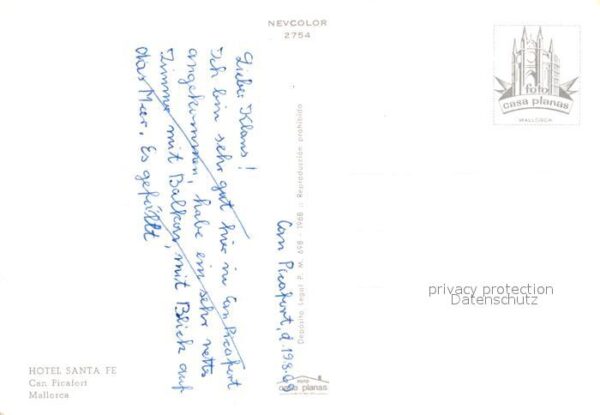 NEVCOLOR
2754
foto
casa planas
MALLORCA
Can Picafort, d. 19.8.69
Lieber Klaus!
Ich bin sehr gut hier in Can Picafort
angekommen, habe ein sehr nettes
Zimmer mit Balkon, mit Blick auf
das Meer. Es gefällt
Depósito Legal P. M. 698 - 1968 :: Reproducción prohibida
foto
casa planas
privacy protection
Datenschutz
HOTEL SANTA FE
Can Picafort
Mallorca